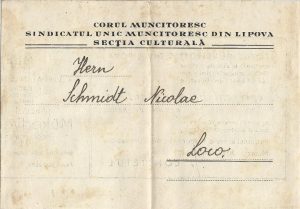 CORUL MUNCITORESC
SINDICATUL UNIC MUNCITORESC DIN LIPOVA
SECȚIA CULTURALĂ
Hern
Schmidt Nicolae
Loco.